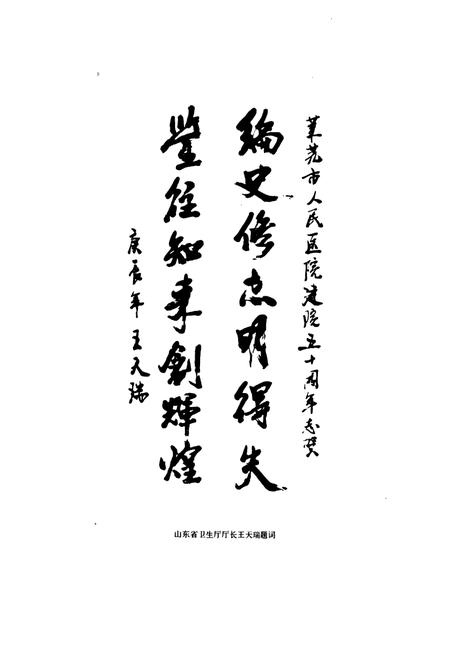 莱芜市人民医院建院五十周年志贺
编史修志明得失
鉴往知来創輝煌
庚辰年王天瑞
山东省卫生厅厅长王天瑞题词